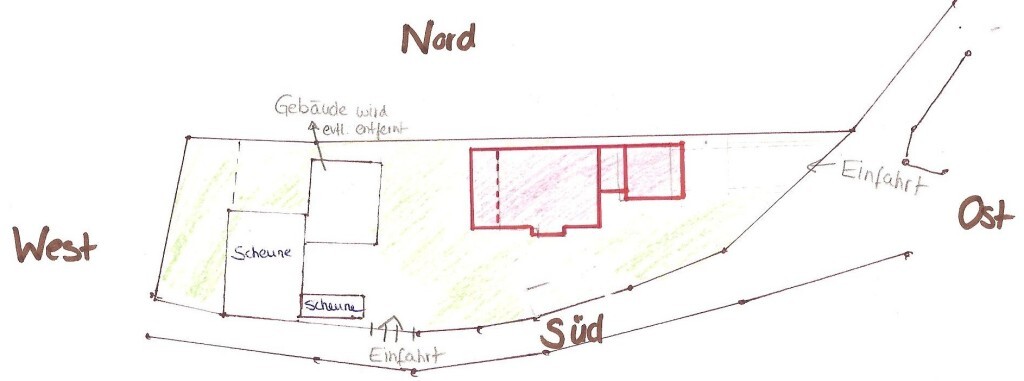 Nord
Gebäude wird
evtl. entfernt
Einfahrt
West
Scheune
Ost
Scheune
Süd
Einfahrt